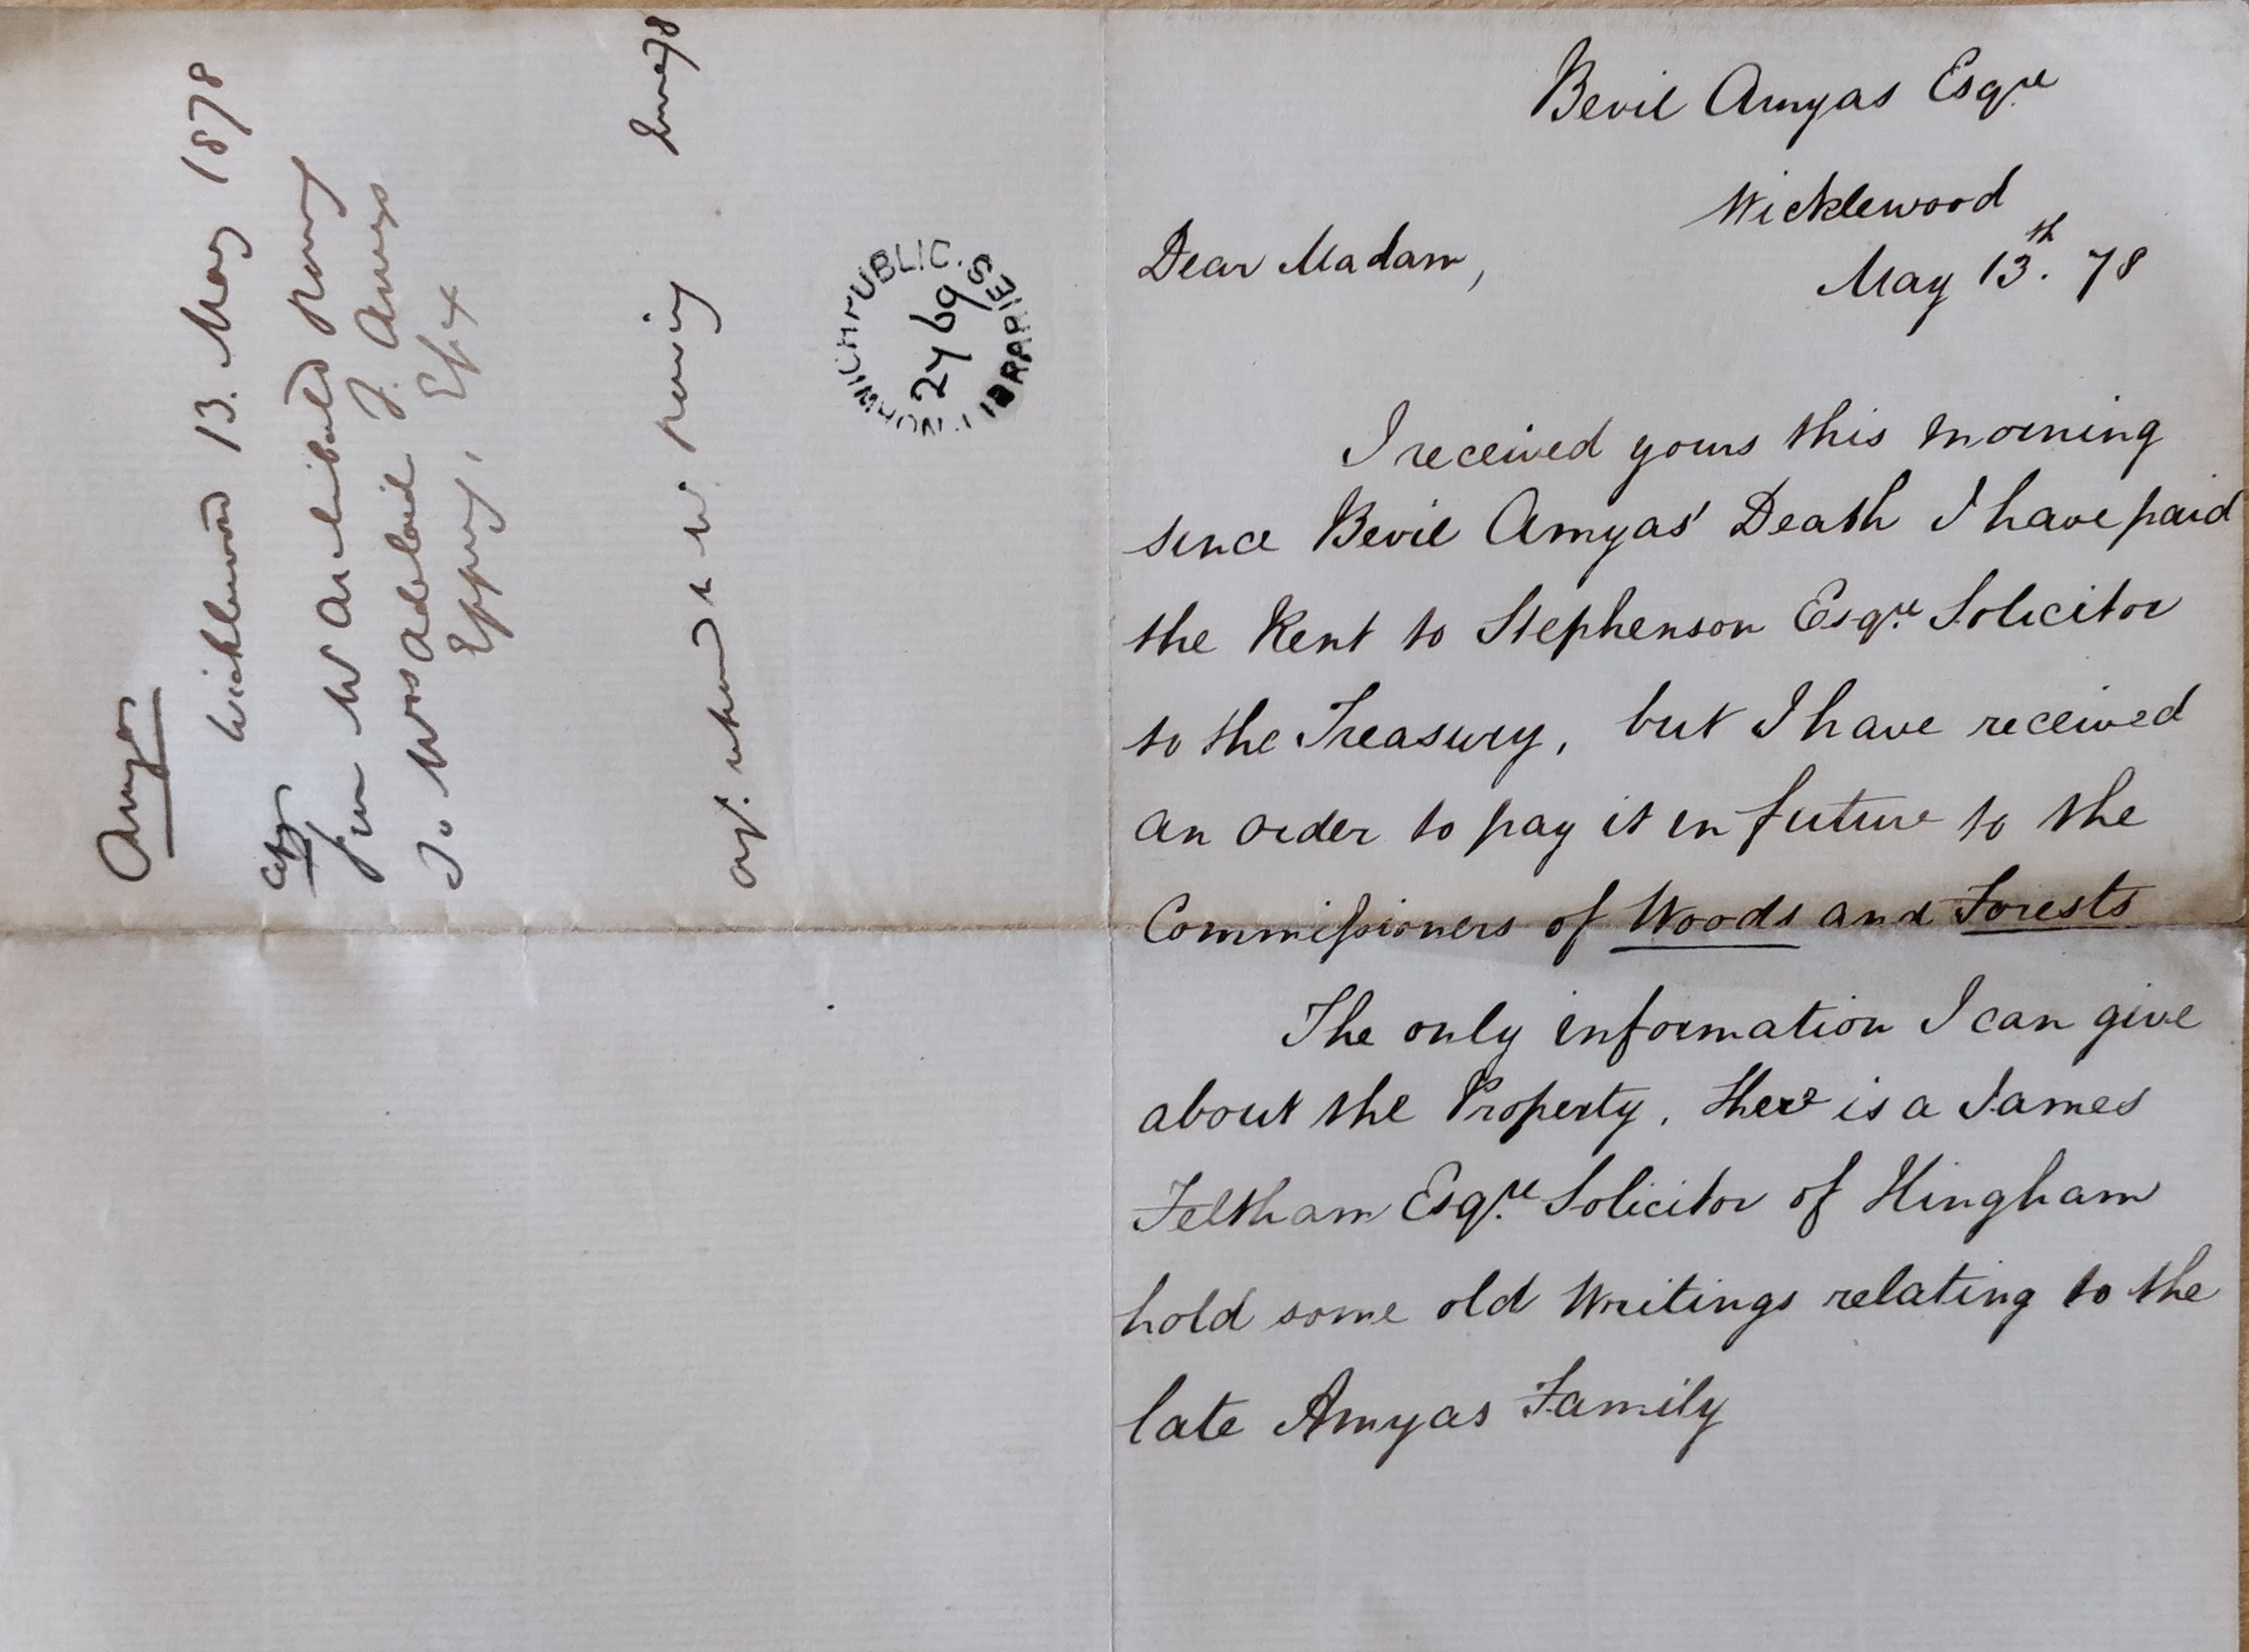 Amyas
Wicklewood 13. May 1878
Copy
from W Archibald
To Mrs Adelaid J. Amyas
Epping, Essex
June 78
NORWICH PUBLIC LIBRARIES
2469
Bevil Amyas Esqre
Wicklewood
May 13th. 78
Dear Madam,
I received yours this morning
since Bevil Amyas' Death I have paid
the Rent to Stephenson Esqre Solicitor
to the Treasury, but I have received
an order to pay it in future to the
Commissioners of Woods and Forests
The only information I can give
about the Property. there is a James
Feltham Esqre Solicitor of Hingham
hold some old Writings relating to the
late Amyas Family